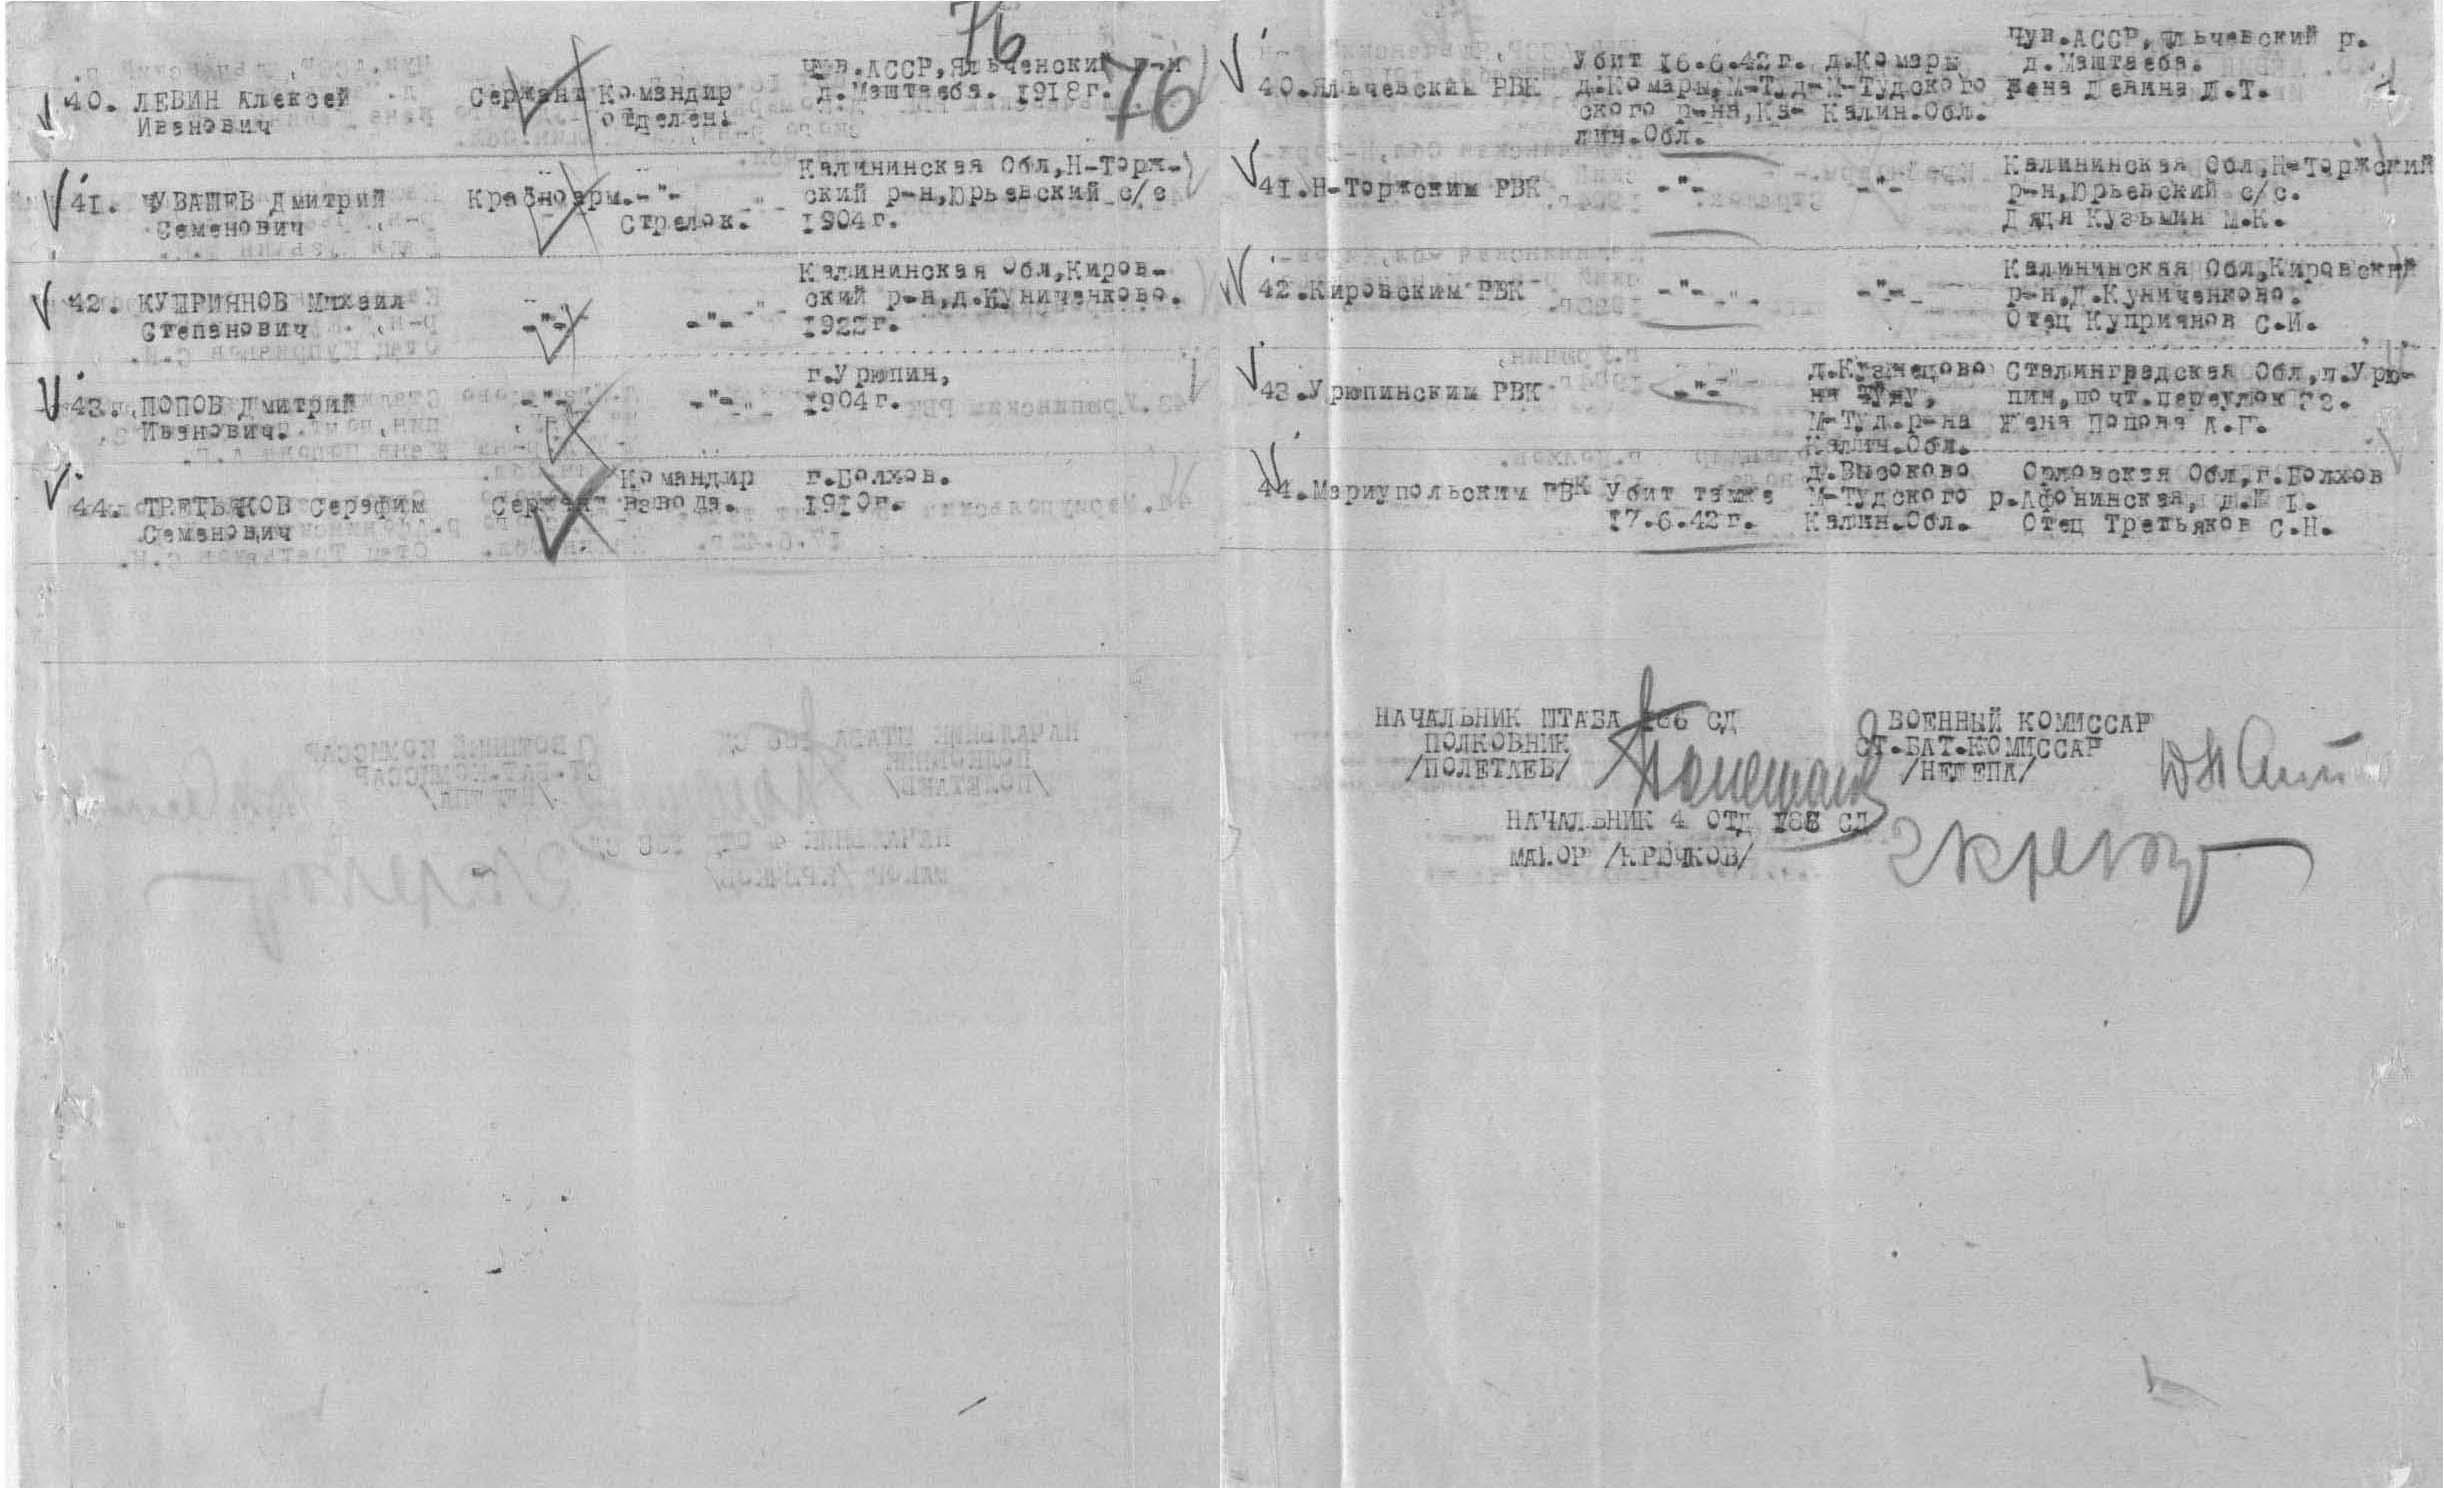 76
76
40. ЛЕВИН Алексей
Иванович
Сержант
Командир
отделен.
Чув.АССР,Яльченский р-н
д.Маштаеба. 1918г.
41. ЧУВАШЕВ Дмитрий
Семенович
Красноарм.-"-
Стрелок.
Калининская Обл,Н-Торж-
ский р-н,Юрьевский с/с
1904г.
42. КУПРИЯНОВ Михаил
Степанович
-"-
-"-
Калининская Обл,Киров-
ский р-н,д.Куниченково.
1922г.
43. ПОПОВ Дмитрий
Иванович.
-"-
-"-
г.Урюпин,
1904г.
44. ТРЕТЬЯКОВ Серафим
Семенович
Сержант
Командир
взвода.
г.Болхов.
1910г.
40.Яльчевским РВК
Убит 16.6.42г.
д.Комары,М-Туд-
ского р-на,Ка-
лин.Обл.
д.Комары
М-Тудского
Калин.Обл.
Чув.АССР,Яльчевский р.
д.Маштаеба.
Жена Левина Л.Т.
41.Н-Торжским РВК
-"-
-"-
Калининская Обл,Н-Торжский
р-н,Юрьевский с/с.
Дядя Кузьмин М.К.
42.Кировским РВК
-"-
-"-
Калининская Обл,Кировский
р-н,д.Куниченково.
Отец Куприянов С.И.
43.Урюпинским РВК
-"-
д.Кузнецово
на Туду,
М-Туд.р-на
Калин.Обл.
Сталинградская Обл,г.Урю-
пин,почт.переулок
Жена Попова А.Г.
44.Мариупольским РВК
Убит также
17.6.42г.
д.Высоково
М-Тудского
Калин.Обл.
Орловская Обл,г.Болхов
р.Афонинская, д.№ 1.
Отец Третьяков С.Н.
НАЧАЛЬНИК ШТАБА 186 СД
ПОЛКОВНИК
/ПОЛЕТАЕВ/
ВОЕННЫЙ КОМИССАР
СТ.БАТ.КОМИССАР
/НЕЛЕПА/
НАЧАЛЬНИК 4 ОТД 186 СД
МАЙОР /КРЮЧКОВ/